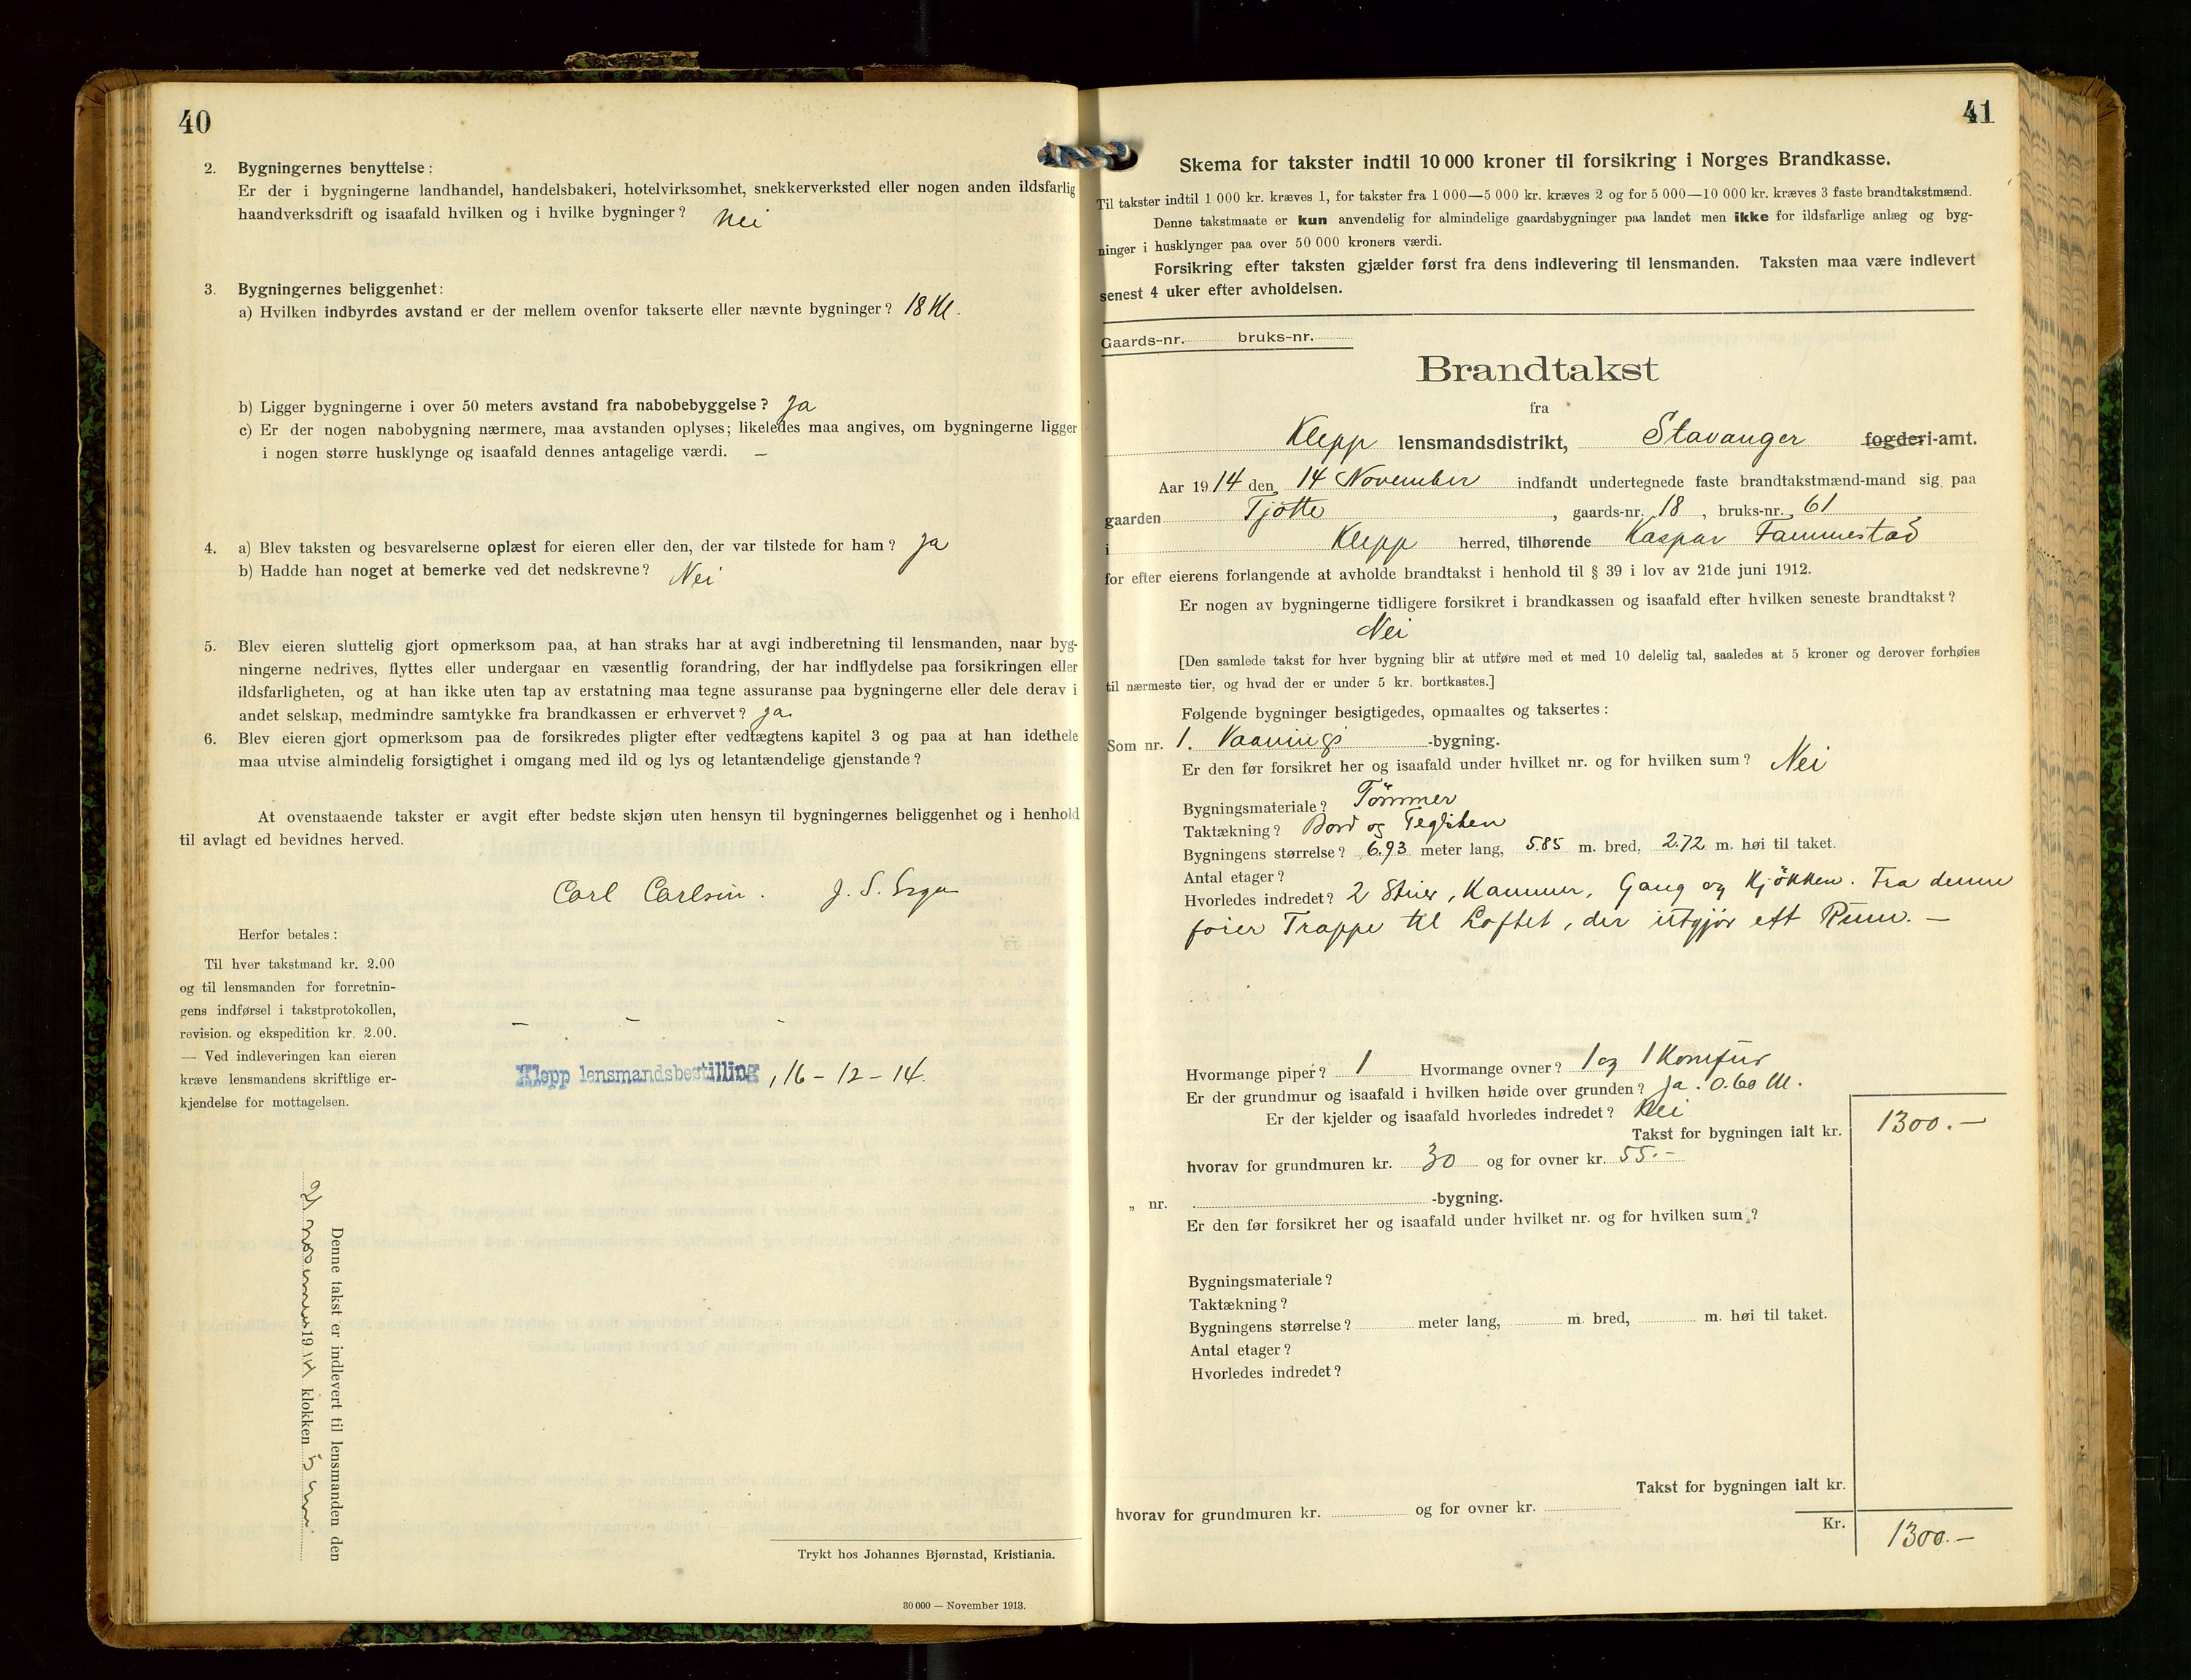 40
2. Bygningernes benyttelse:
Er der i bygningerne landhandel, handelsbakeri, hotelvirksomhet, snekkerverksted eller nogen anden ildsfarlig
haandverksdrift og isaafald hvilken og i hvilke bygninger? Nei
3. Bygningernes beliggenhet:
a) Hvilken indbyrdes avstand er der mellem ovenfor takserte eller nævnte bygninger? 18 M.
b) Ligger bygningerne i over 50 meters avstand fra nabobebyggelse? Ja
c) Er der nogen nabobygning nærmere, maa avstanden oplyses; likeledes maa angives, om bygningerne ligger
i nogen større husklynge og isaafald dennes antagelige værdi. —
4. a) Blev taksten og besvarelserne oplæst for eieren eller den, der var tilstede for ham? Ja
b) Hadde han noget at bemerke ved det nedskrevne? Nei
5. Blev eieren sluttelig gjort opmerksom paa, at han straks har at avgi indberetning til lensmanden, naar byg-
ningerne nedrives, flyttes eller undergaar en væsentlig forandring, der har indflydelse paa forsikringen eller
ildsfarligheten, og at han ikke uten tap av erstatning maa tegne assuranse paa bygningerne eller dele derav i
andet selskap, medmindre samtykke fra brandkassen er erhvervet? Ja
6. Blev eieren gjort opmerksom paa de forsikredes pligter efter vedtægtens kapitel 3 og paa at han idethele
maa utvise almindelig forsigtighet i omgang med ild og lys og letantændelige gjenstande?
At ovenstaaende takster er avgit efter bedste skjøn uten hensyn til bygningernes beliggenhet og i henhold
til avlagt ed bevidnes herved.
Carl Carlsen. J. S.
Herfor betales:
Til hver takstmand kr. 2.00
og til lensmanden for forretnin-
gens indførsel i takstprotokollen,
revision og ekspedition kr. 2.00.
— Ved indleveringen kan eieren
kræve lensmandens skriftlige er-
kjendelse for mottagelsen.
Klepp lensmandsbestilling, 16-12-14.
Denne takst er indlevert til lensmanden den
21 november 1914 klokken 5
Trykt hos Johannes Bjørnstad, Kristiania.
30 000 — November 1913.
41
Skema for takster indtil 10 000 kroner til forsikring i Norges Brandkasse.
Til takster indtil 1 000 kr. kræves 1, for takster fra 1 000—5 000 kr. kræves 2 og for 5 000—10 000 kr. kræves 3 faste brandtakstmænd.
Denne takstmaate er kun anvendelig for almindelige gaardsbygninger paa landet men ikke for ildsfarlige anlæg og byg-
ninger i husklynger paa over 50 000 kroners værdi.
Forsikring efter taksten gjælder først fra dens indlevering til lensmanden. Taksten maa være indlevert
senest 4 uker efter avholdelsen.
Gaards-nr. bruks-nr.
Brandtakst
fra
Klepp lensmandsdistrikt, Stavanger fogderi-amt.
Aar 1914 den 14 November indfandt undertegnede faste brandtakstmænd-mand sig paa
gaarden Tjøtte, gaards-nr. 18, bruks-nr. 61
i Klepp herred, tilhørende Kaspar Fammestad
for efter eierens forlangende at avholde brandtakst i henhold til § 39 i lov av 21de juni 1912.
Er nogen av bygningerne tidligere forsikret i brandkassen og isaafald efter hvilken seneste brandtakst?
Nei
[Den samlede takst for hver bygning blir at utføre med et med 10 delelig tal, saaledes at 5 kroner og derover forhøies
til nærmeste tier, og hvad der er under 5 kr. bortkastes.]
Følgende bygninger besigtigedes, opmaaltes og taksertes:
Som nr. 1. Vaanings-bygning.
Er den før forsikret her og isaafald under hvilket nr. og for hvilken sum? Nei
Bygningsmateriale? Tömmer
Taktækning? Bord og Teglsten
Bygningens størrelse? 6.93 meter lang, 5.85 m. bred, 2.72 m. høi til taket.
Antal etager?
Hvorledes indredet? 2 Stuer, Kammer, Gang og Kjøkken. Fra denne
foier Trappe til Loftet, der utgjør ett Rum. —
Hvormange piper? 1 Hvormange ovner? 1 og 1 Komfur
Er der grundmur og isaafald i hvilken høide over grunden? Ja. 0.60 M.
Er der kjelder og isaafald hvorledes indredet? Nei
Takst for bygningen ialt kr. 1300.—
hvorav for grundmuren kr. 30 og for ovner kr. 55.-
„ nr. -bygning.
Er den før forsikret her og isaafald under hvilket nr. og for hvilken sum?
Bygningsmateriale?
Taktækning?
Bygningens størrelse? meter lang, m. bred, m. høi til taket.
Antal etager?
Hvorledes indredet?
Takst for bygningen ialt kr.
hvorav for grundmuren kr. og for ovner kr.
Kr. 1300.—